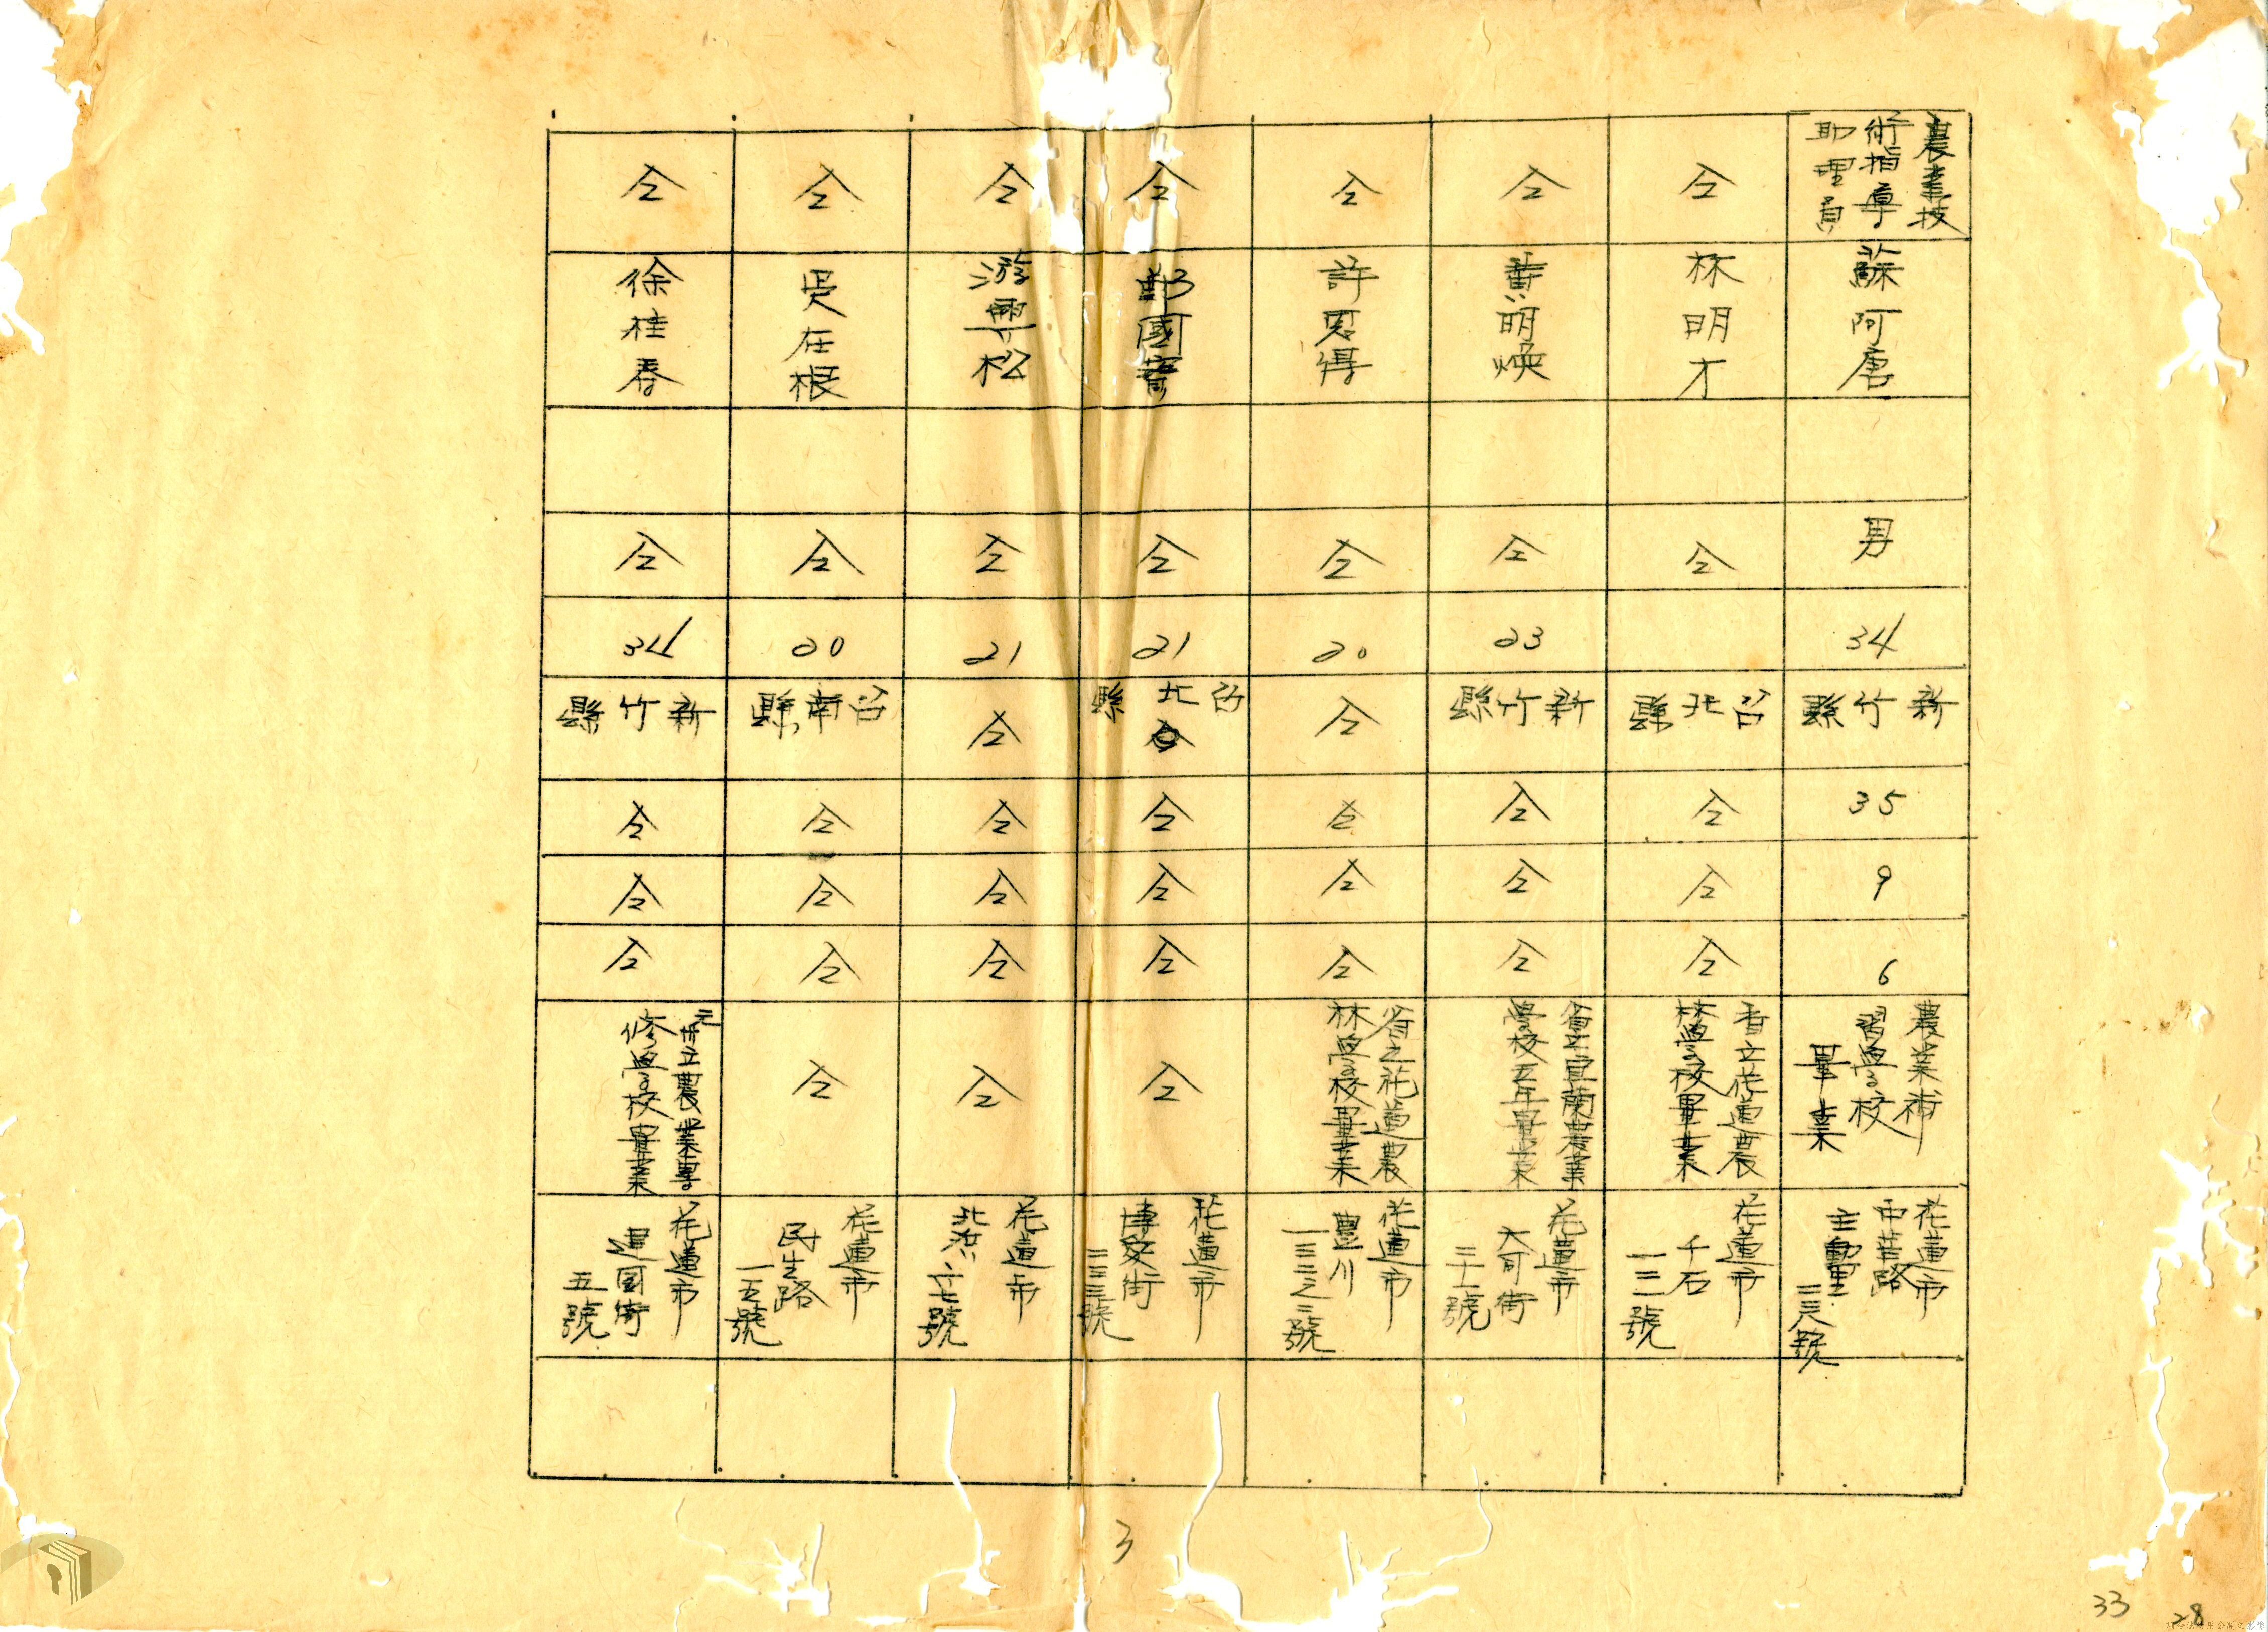 農業技
術指導
助理員
蘇阿唐
男
34
新竹縣
35
9
6
農業術
習學校
畢業
花蓮市
中華路
主動里
三三八號
仝
林明才
仝
台北縣
仝
仝
仝
省立花蓮農
林學校畢業
花蓮市
千石
一三一號
仝
黃明煥
仝
23
新竹縣
仝
仝
仝
省立宜蘭農業
學校五年畢業
花蓮市
大可街
三十二號
仝
許恩得
仝
20
仝
仝
仝
仝
省立花蓮農
林學校畢業
花蓮市
豊川
一三三之三號
仝
鄭國寶
仝
21
台北縣
仝
仝
仝
仝
花蓮市
博愛街
三三三號
仝
游興松
仝
21
仝
仝
仝
仝
仝
花蓮市
北濱
六七號
仝
吳在根
仝
20
台南縣
仝
仝
仝
仝
花蓮市
民生路
一五號
仝
徐桂春
仝
34
新竹縣
仝
仝
仝
元州立農業專
修學校畢業
花蓮市
建國街
五號
3
33
28